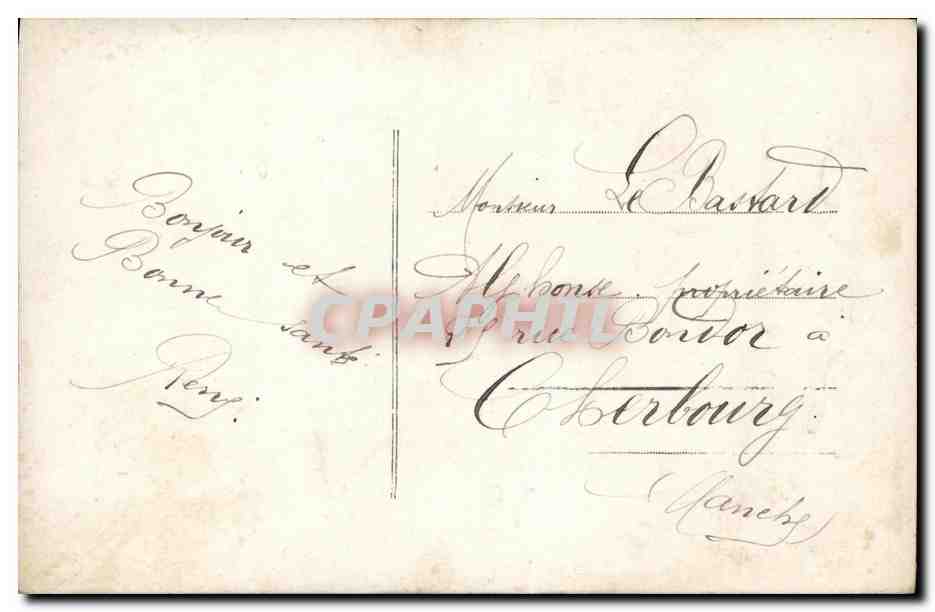 Bonjour et
Bonne santé
Remy.
Monsieur Le Bastard
Alphonse. propriétaire
rue Bondor à
Cherbourg.
Manche
CPAPHIL